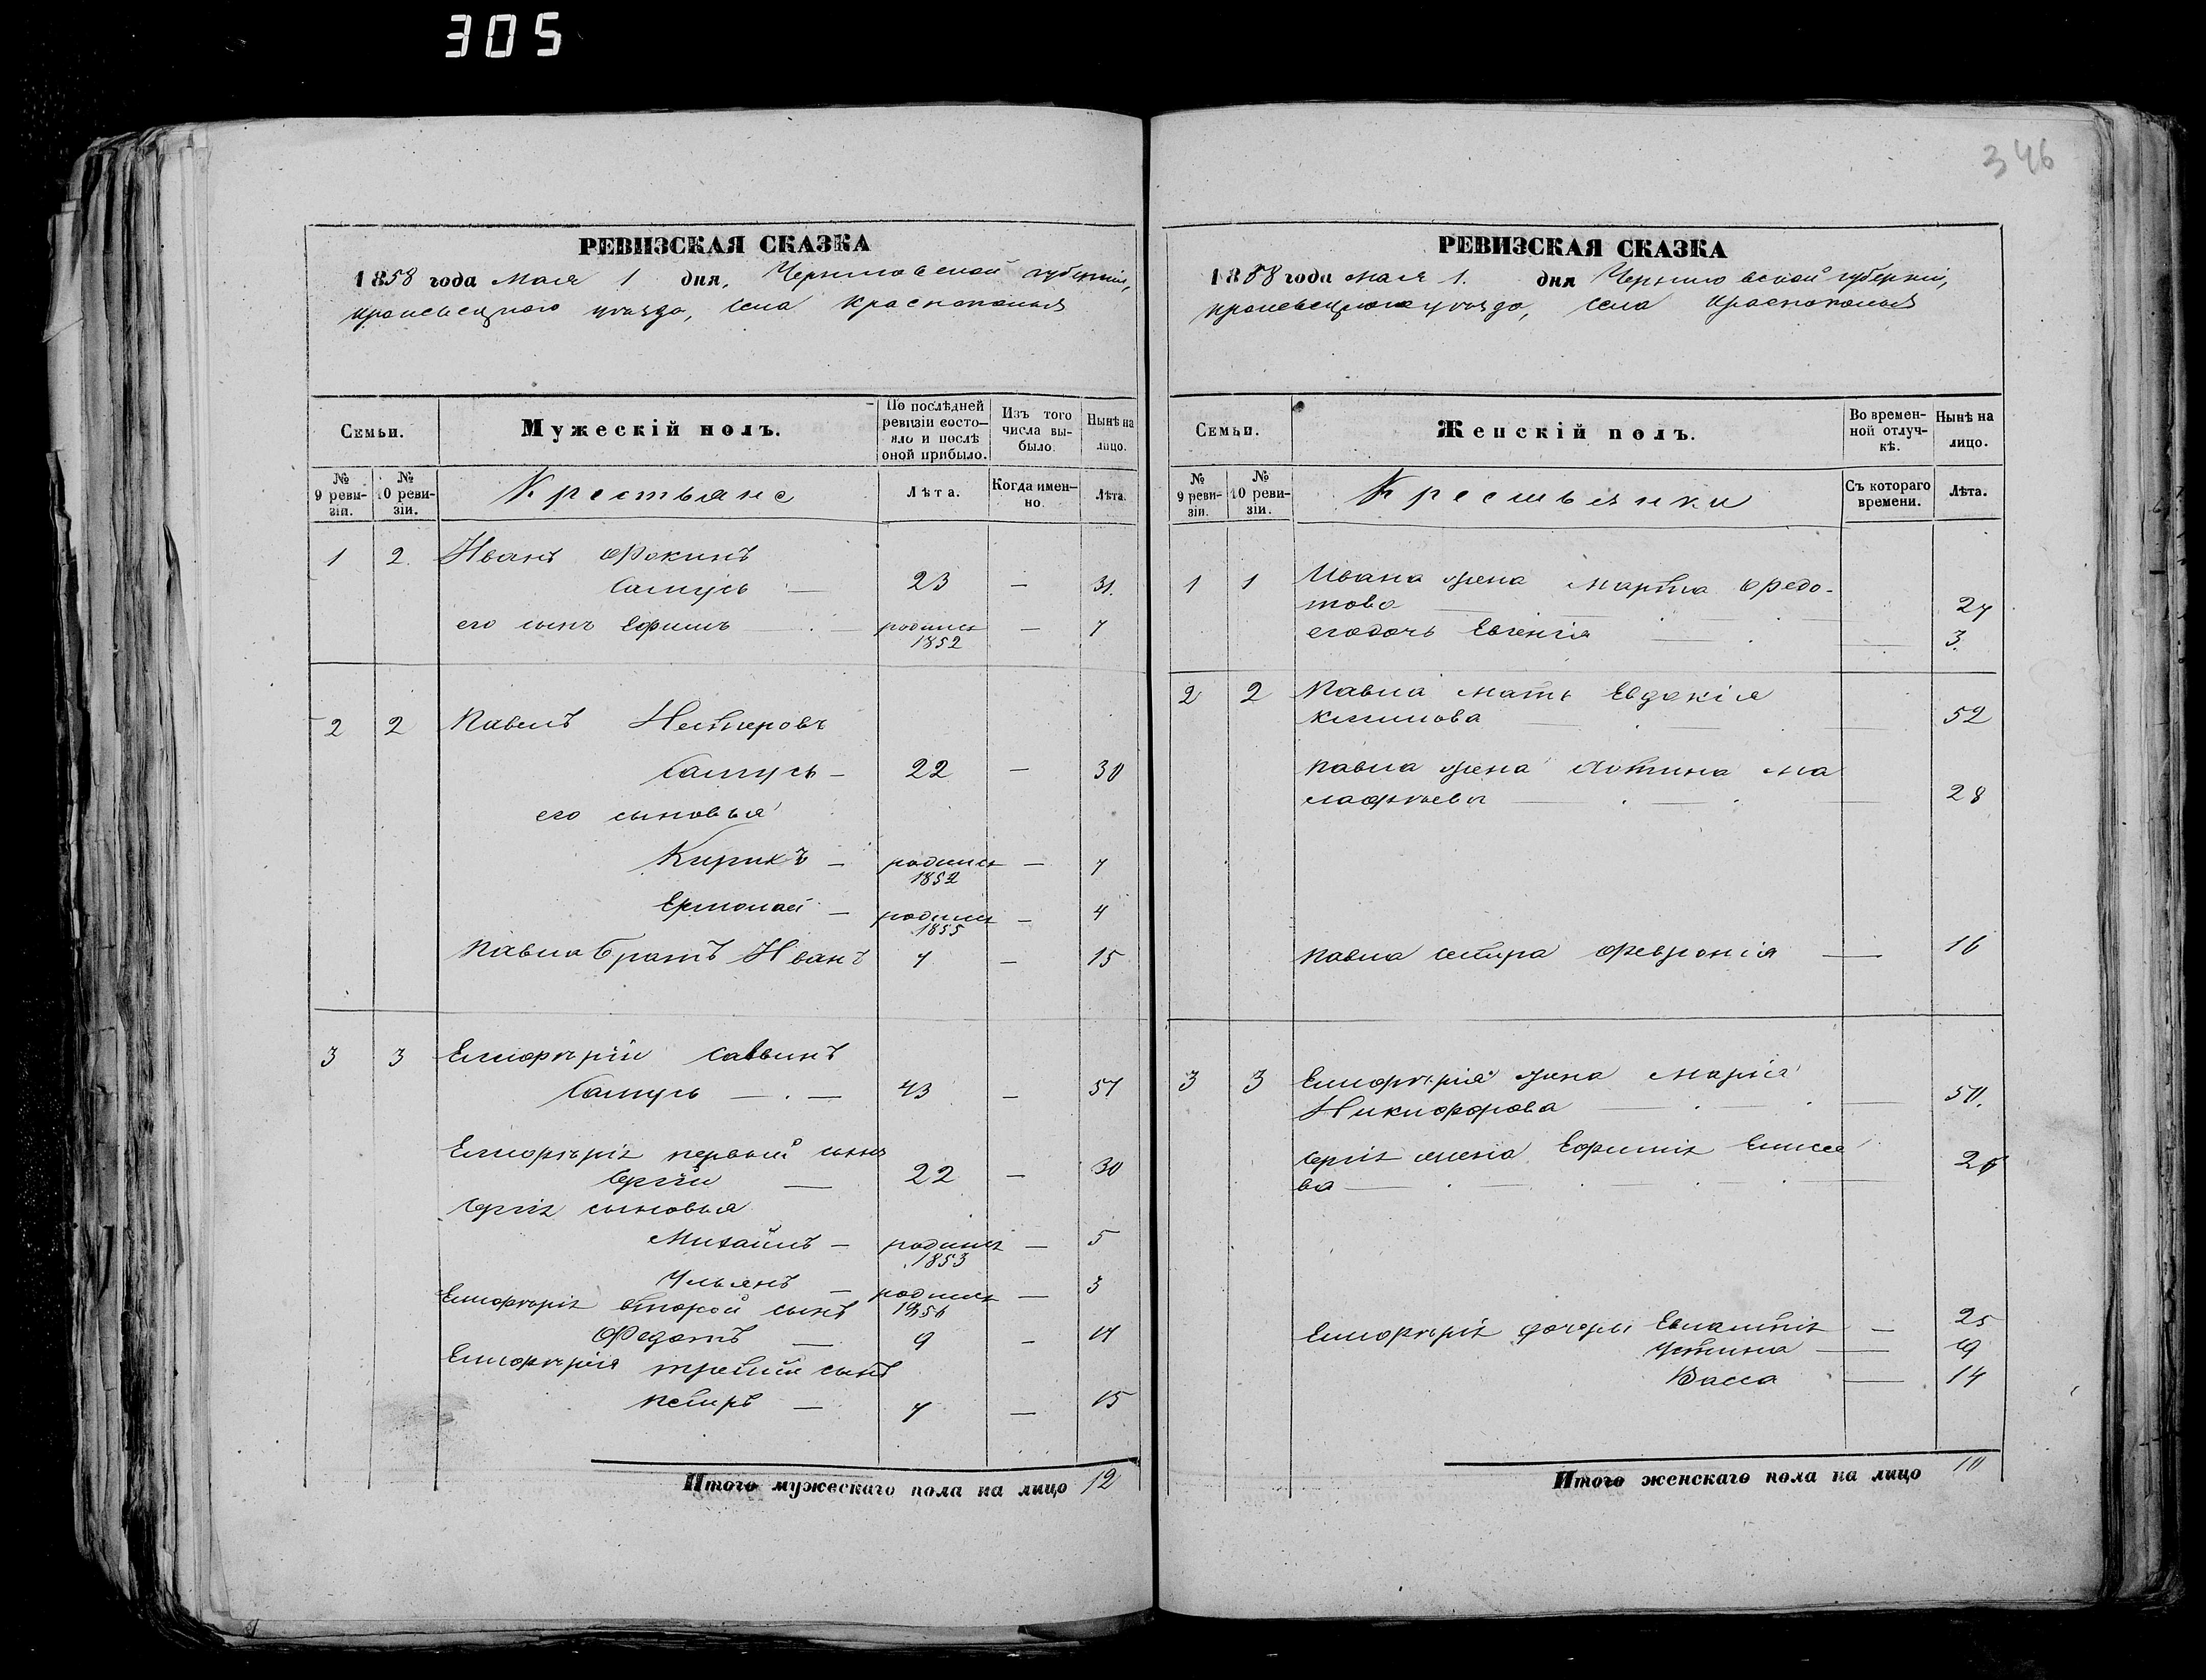 305
346
РЕВИЗСКАЯ СКАЗКА
1858 года мая 1 дня, Черниговской губернии,
кролевецкаго уѣзда, села краснополья
Семьи.
Мужескій полъ.
По послѣдней ревизіи состояло и послѣ оной прибыло.
Изъ того числа выбыло.
Нынѣ на лицо.
№ 9 ревизіи.
№ 10 ревизіи.
Крестьяне
Лѣта.
Когда именно.
Лѣта.
1 2. Иванъ Фокинъ
Самусь — 23 — 31.
его сынъ Ефимъ — родился 1852 — 7
2 2 Павелъ Нестеровъ
Самусь — 22 — 30
его сыновья
Кирикъ — родился 1852 — 7
Ермолай — родился 1855 — 4
Павла братъ Иванъ 7 — 15
3 3 Елиферій Саввинъ
Самусь — . — 43 — 51
Елиферія первый сынъ
Сергій — 22 — 30
Сергія сыновья
Михайлъ — родился 1853 — 5
Ульянъ — родился 1856 — 3
Елиферія второй сынъ
Федотъ — 9 — 17
Елиферія третій сынъ
Петръ — 7 — 15
Итого мужескаго пола на лицо 12
РЕВИЗСКАЯ СКАЗКА
1858 года мая 1. дня Черниговской губерніи,
кролевецкаго уѣзда, села краснополья
Семьи.
Женскій полъ.
Во временной отлучкѣ.
Нынѣ на лицо.
№ 9 ревизіи.
№ 10 ревизіи.
Крестьянки
Съ котораго времени.
Лѣта.
1 1 Ивана жена Марфа Федо-
това — 27
его дочь Евгенія — 3.
2 2 Павла мать Евдокія
Климова — 52
Павла жена Устина Ма
лафѣева — 28
Павла сестра Февронія — 16
3 3 Елиферія жена Марія
Никифорова — 50.
Сергія жена Ефимія Елисее
ва — 26
Елиферія дочери Евлампія — 25
Устина — 19
Васса — 14
Итого женскаго пола на лицо 10